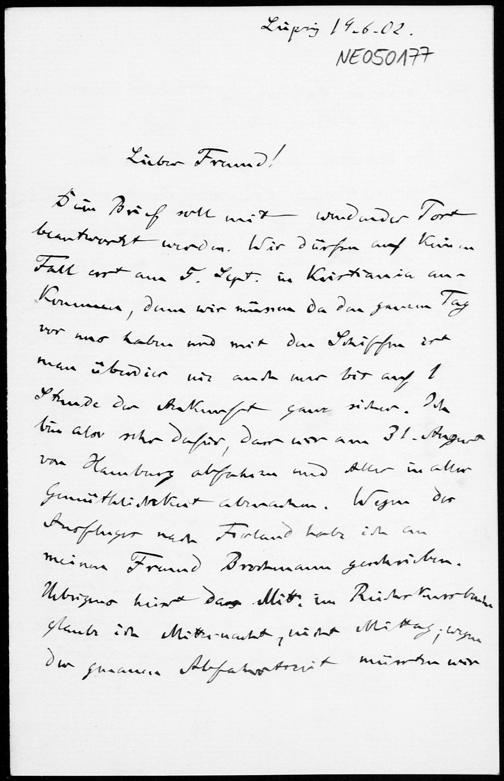 Leipzig 19.6.02.
NE050177
Lieber Freund!
Dein Brief soll mit wendender Post
beantwortet werden. Wir dürfen auf keinen
Fall erst am 5. Sept. in Kristiania an-
kommen, denn wir müssen da den ganzen Tag
vor uns haben und mit den Schiffen ist
man überdies nie auch nur bis auf 1
Stunde der Ankunft ganz sicher. Ich
bin also sehr dafür, dass wir am 31. August
von Hamburg abfahren und Alles in aller
Gemüthlichkeit abmachen. Wegen des
Ausfluges nach habe ich an
meinen Freund Brockmann geschrieben.
Uebrigens heisst das Mitt. im Reichskursbuche
glaube ich Mitternacht, nicht Mittag; wegen
der genauen Abfahrtszeit müssten wir